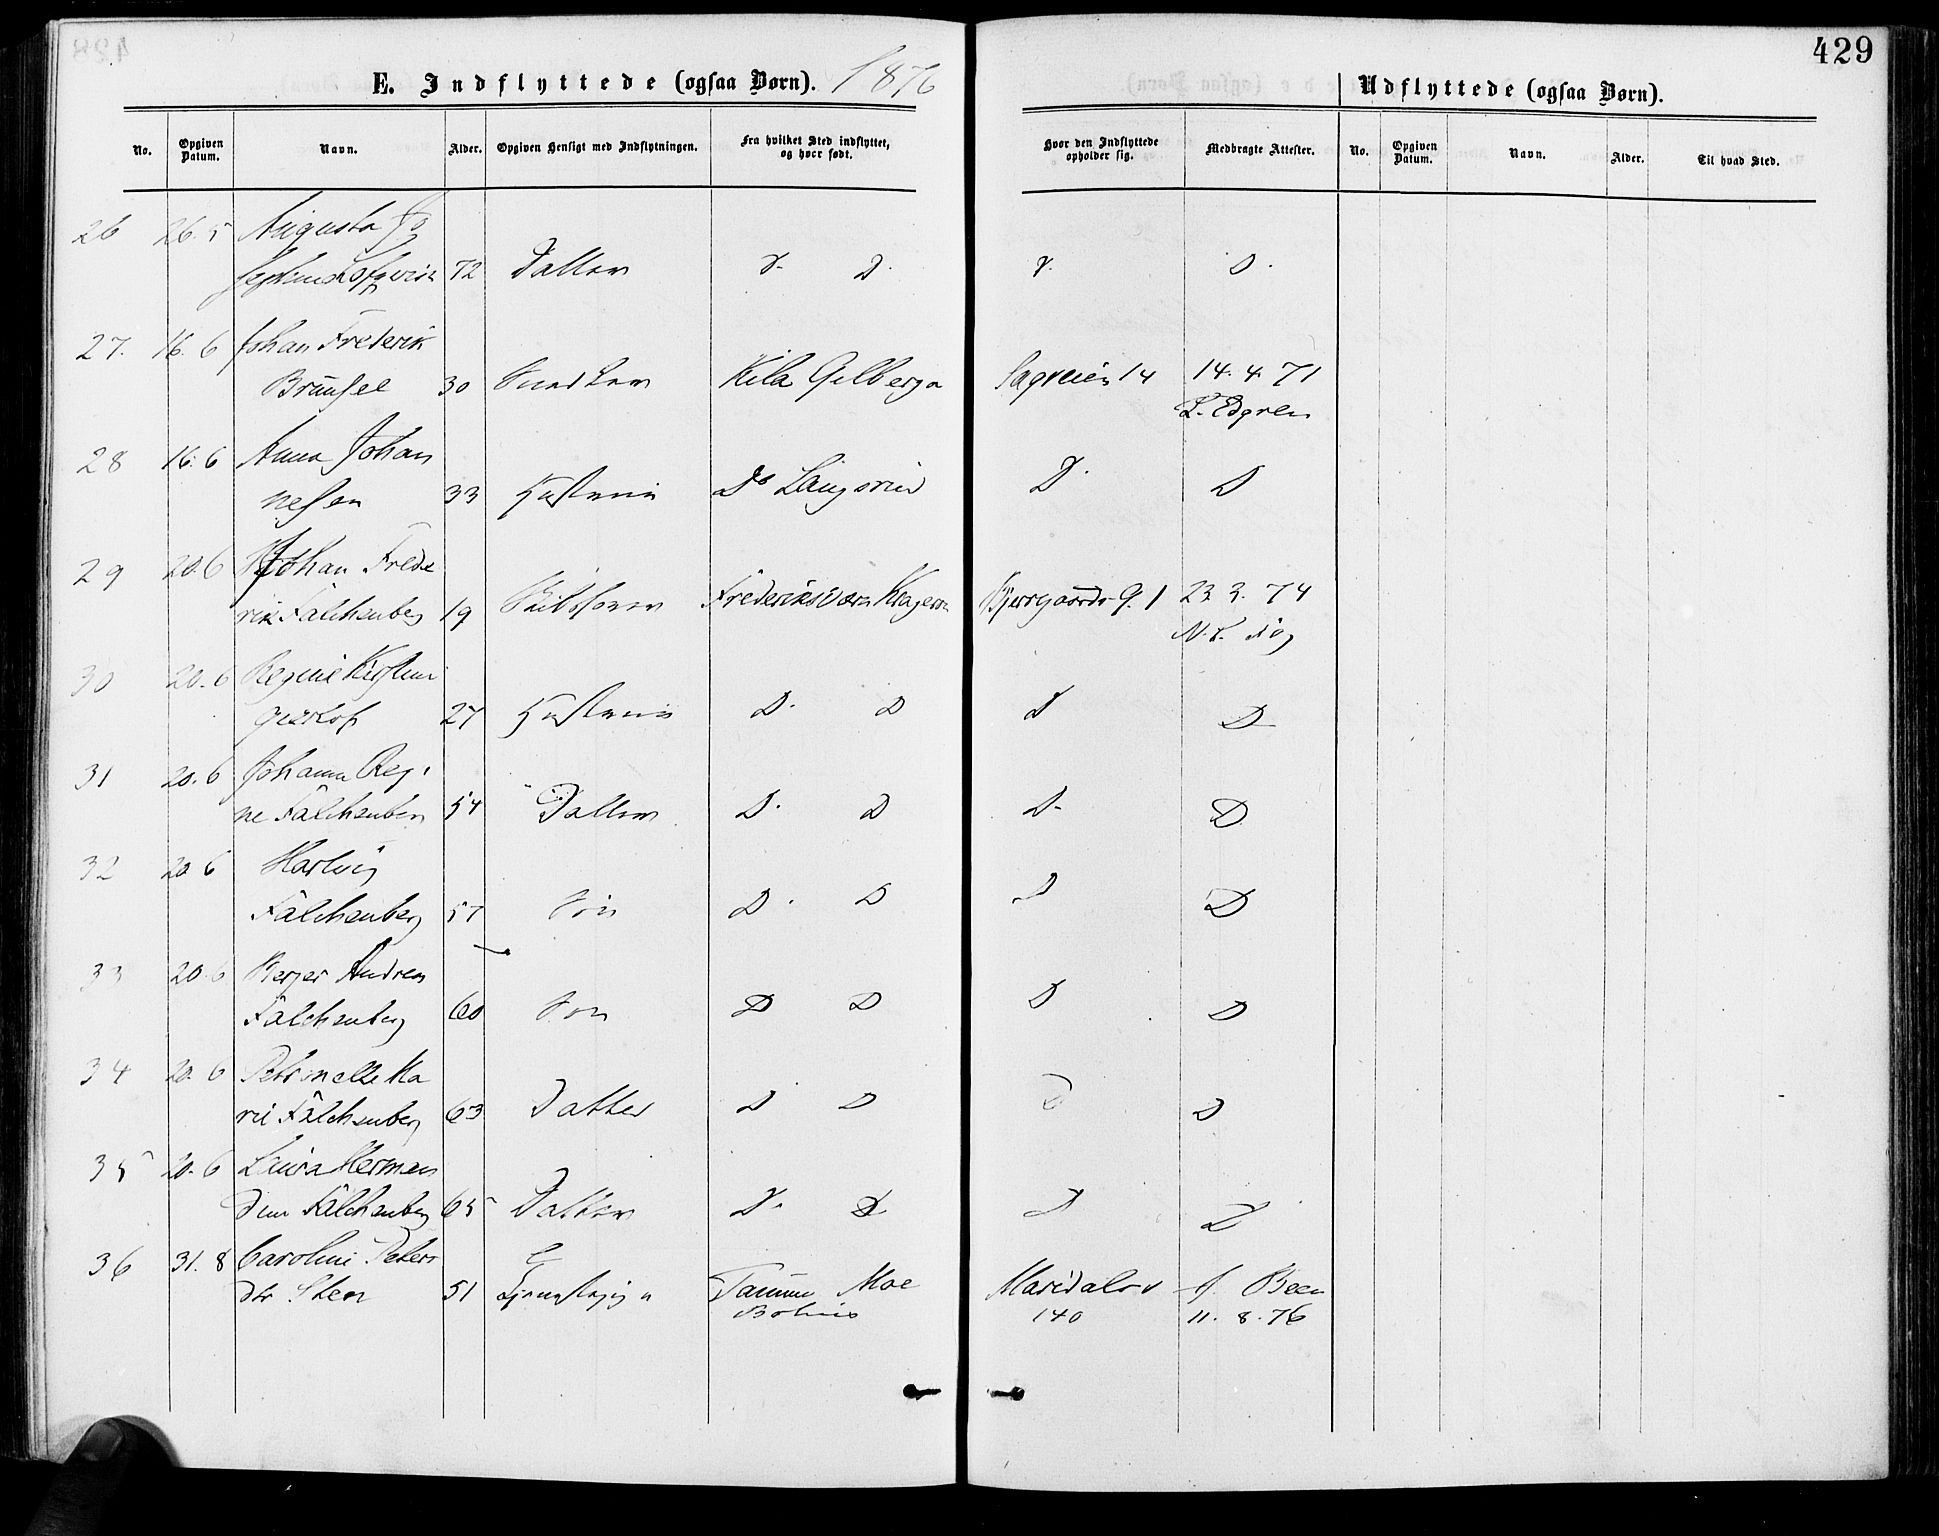 429
E. Indflyttede (ogsaa Børn). 1876
Udflyttede (ogsaa Børn).
No. Opgiven Datum. Navn. Alder. Opgiven Hensigt med Indflytningen. Fra hvilket Sted indflyttet, og hvor født. Hvor den Indflyttede opholder sig. Medbragte Attester. No. Opgiven Datum. Navn. Alder. Til hvad Sted.
26 26.5 Augusta Jo
72 Datter D. D. D. D.
27. 16.6 Johan Frederik
30 Kila Gilberga 14 14.4.71
L. Edgren
28 16.6 Anna Johan
nesen 33 Hustru Do D. D
29 20.6 Johan Frede
rik Falchenberg 19 Frederiksværn Kragerø 9.1 23.3.74
30 20.6 Regine
27 Hustru D. D D D
31 20.6 Johanna Regi
ne Falchenberg 54 Datter D. D D. D
32 20 6 Hartvig
Falchenberg 57 Søn D. D D D
33 20.6 Andreas
Falchenberg 60 Søn D D D D
34 20.6 Petronelle Ma
rie Falchenberg 63 Datter D D D D
35 20.6 Laura Herman
dine Falchenberg 65 Datter D. D D D
36 31.8 Caroline Peters
dtr Sten 51 Tanum Moe Maridalsv Been
140 11.8.76